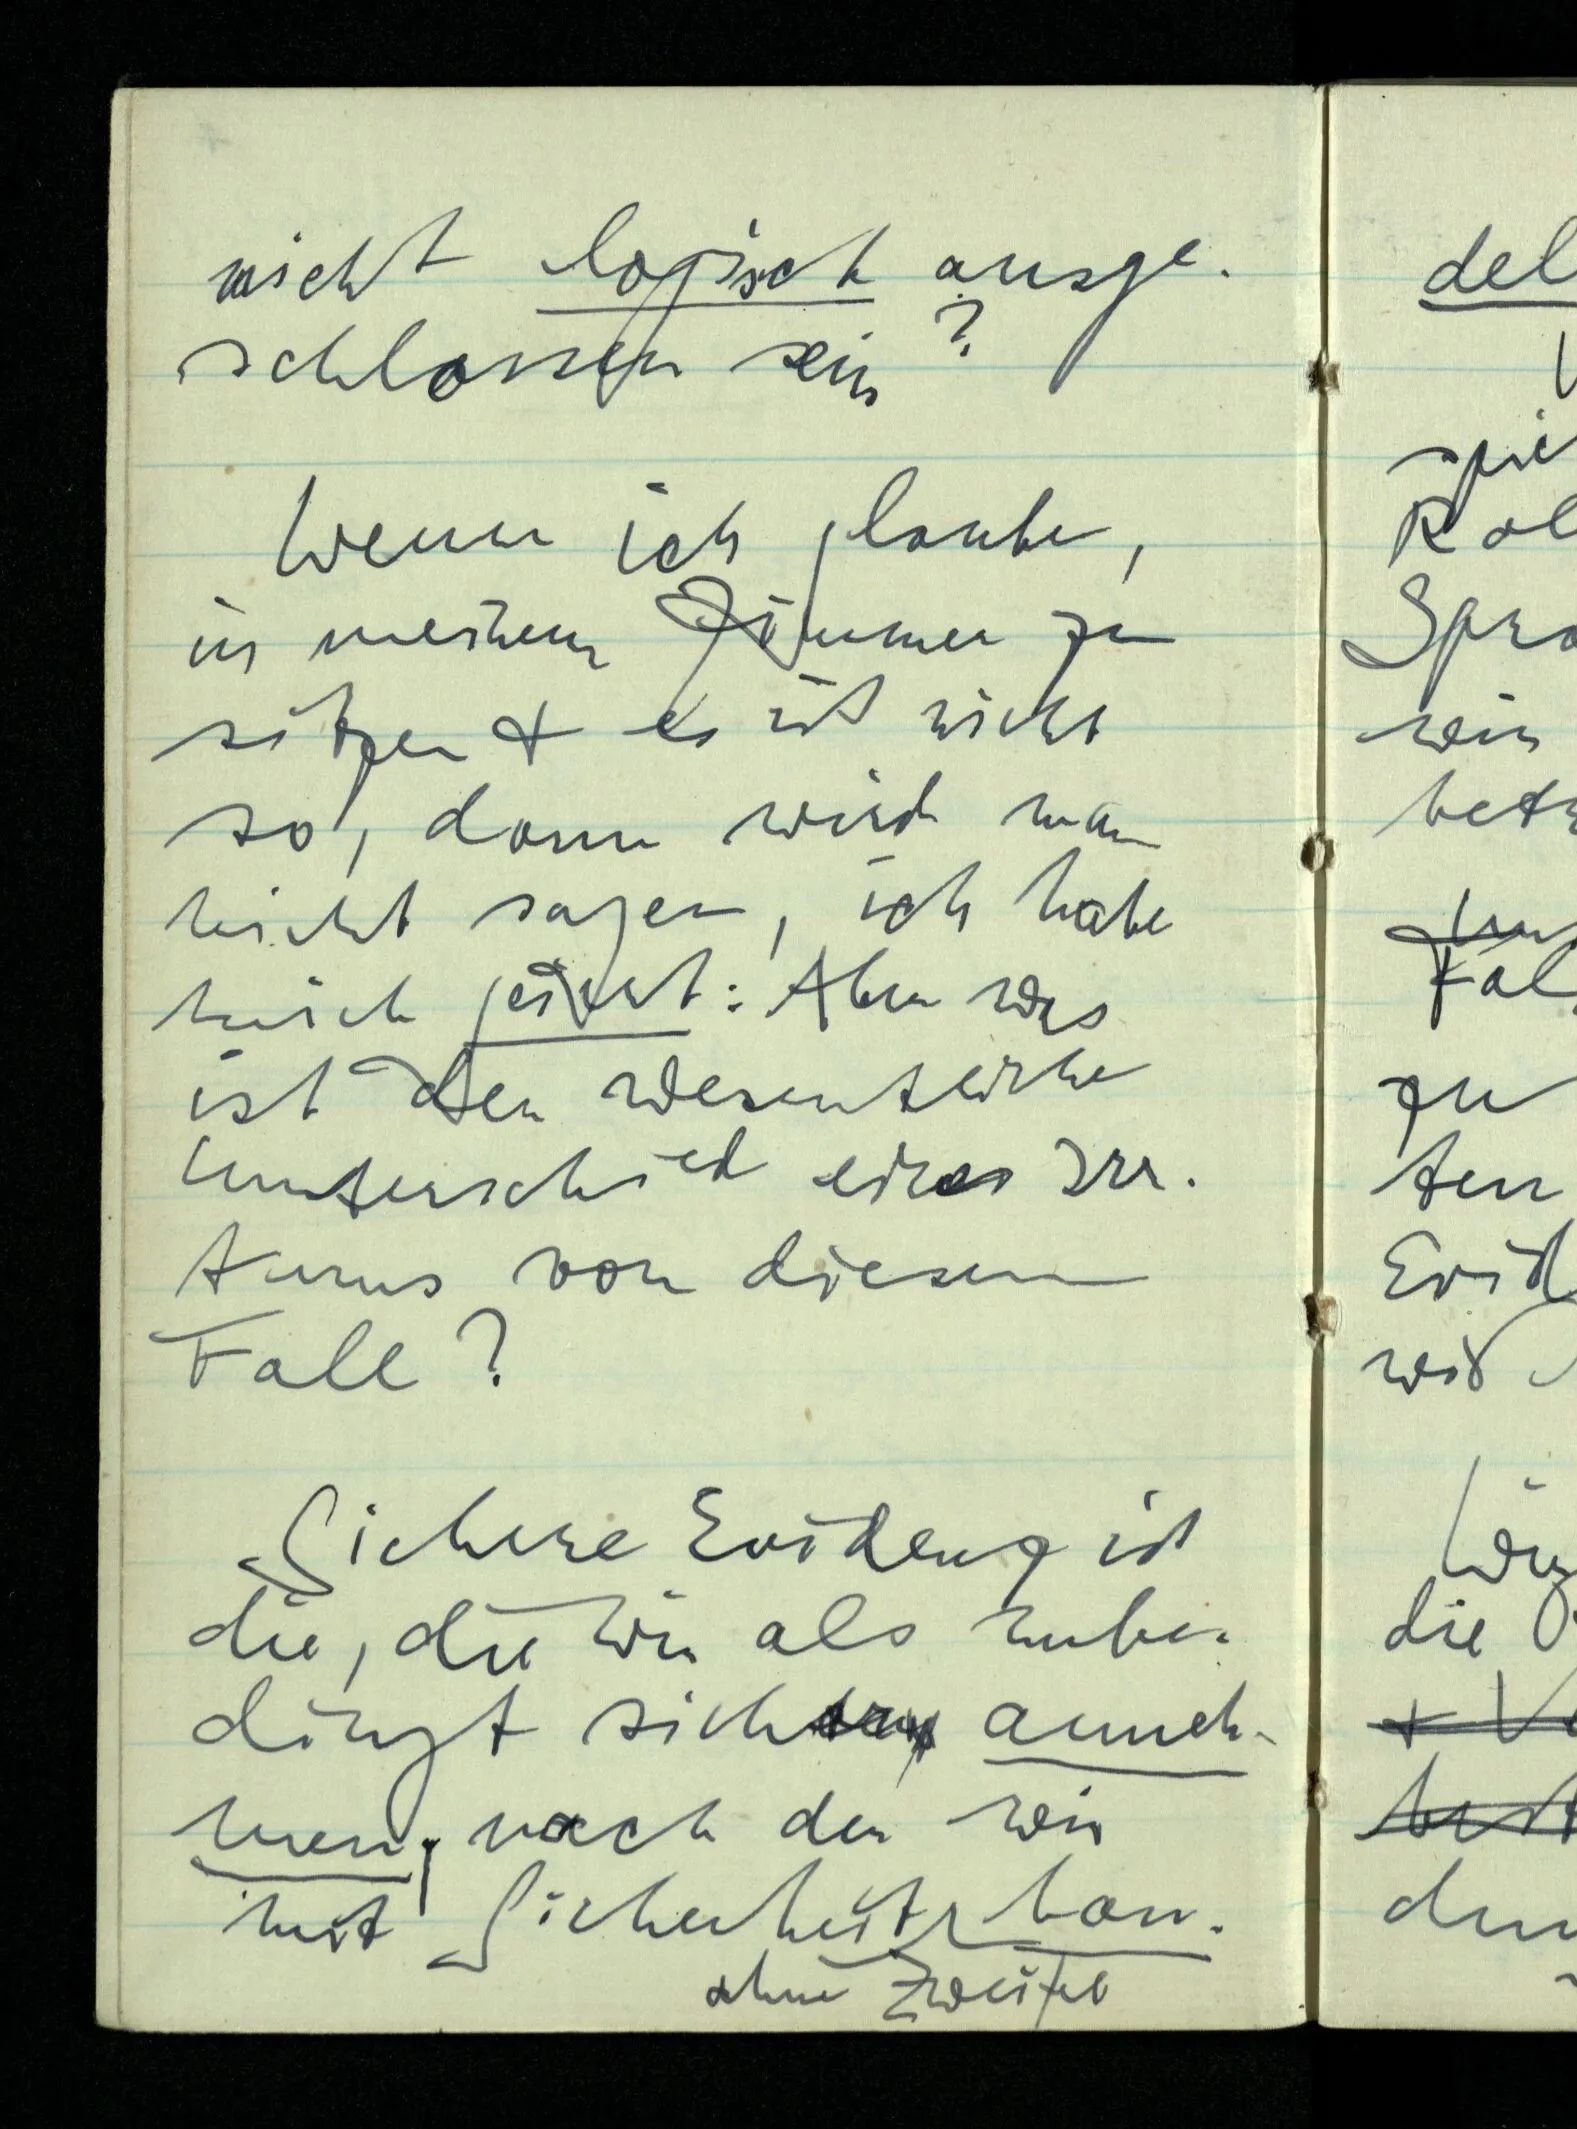 nicht logisch ausge-
schlossen sein?
Wenn ich glaube,
in meinem Zimmer zu
sitzen & es ist nicht
so, dann wird man
nicht sagen, ich habe
mich geirrt: Aber was
ist der wesentliche
Unterschied eines Irr-
tums von diesem
Fall?
Sichere Evidenz ist
die, die wir als unbe-
dingt sicher anneh-
men, nach der wir
mit Sicherheit han-
ohne Zweifel
del
spie
Rol
Spra
wir
betr
Fal
zu
ten
Evid
wir
die